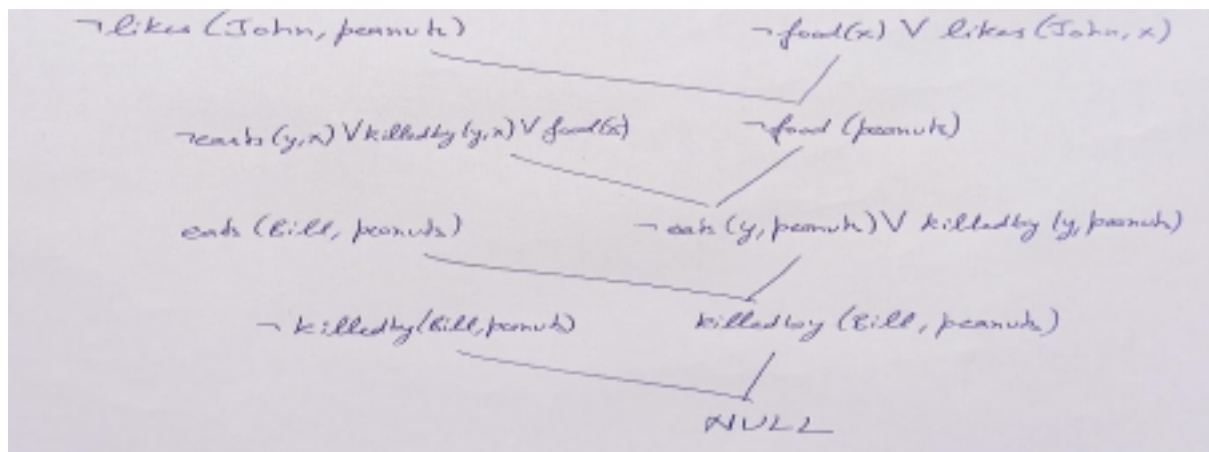 ¬likes (John, peanuts) ¬food(x) V likes (John, x)
¬eats (y,x) V killedby (y,x) V food(x) ¬food (peanuts)
eats (Bill, peanuts) ¬eats (y, peanuts) V killedby (y, peanuts)
¬killedby (Bill, peanuts) killedby (Bill, peanuts)
NULL